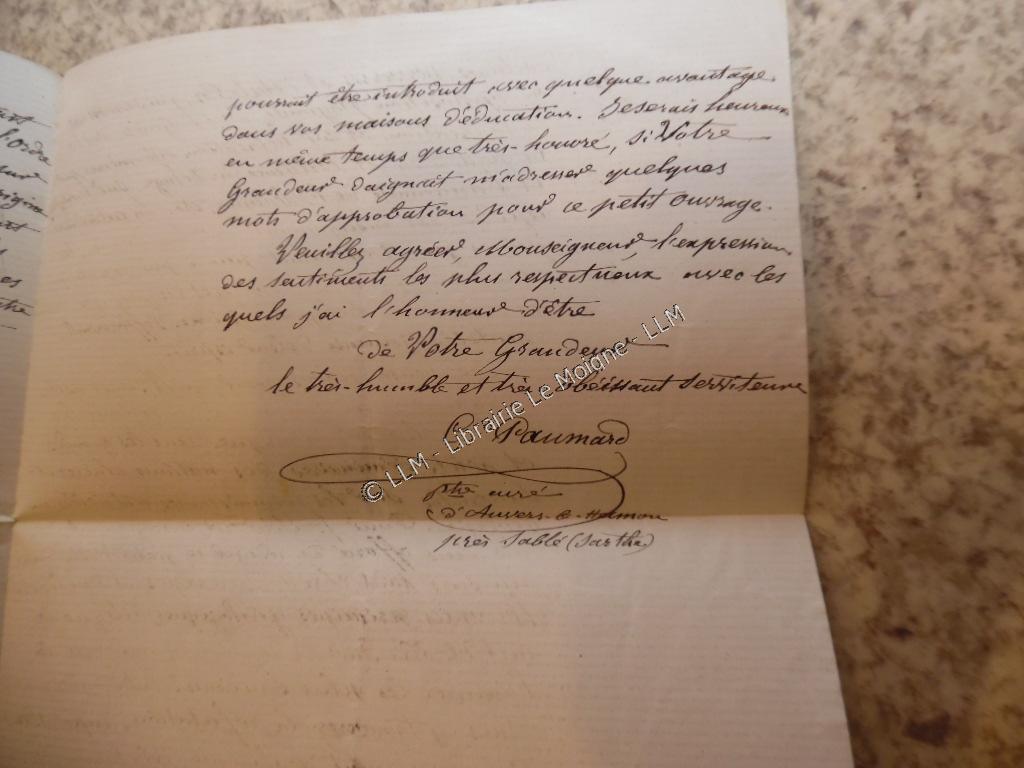 pourrait être introduit avec quelque avantage
dans vos maisons d'éducation. Je serais heureux
en même temps que très-honoré, si Votre
Grandeur daignait m'adresser quelques
mots d'approbation pour ce petit ouvrage.
Veuillez agréer, Monseigneur, l'expression
des sentiments les plus respectueux avec les
quels j'ai l'honneur d'être
de Votre Grandeur
le très-humble et très-obéissant serviteur
Paumard
ptre curé
d'Auvers-le-Hamon
près Sablé (Sarthe)
© LLM - Librairie Le Moigne - LLM